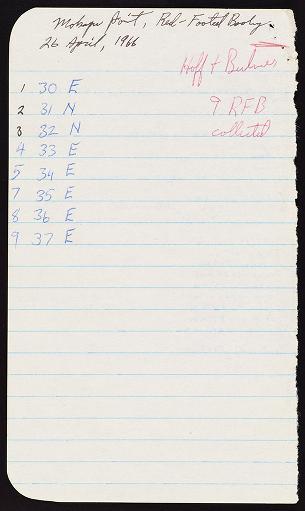 Mokapu Point, Red-Footed Booby
26 April, 1966
Hoff &
9 RFB
collected
1 30 E
2 31 N
3 32 N
4 33 E
5 34 E
7 35 E
8 36 E
9 37 E